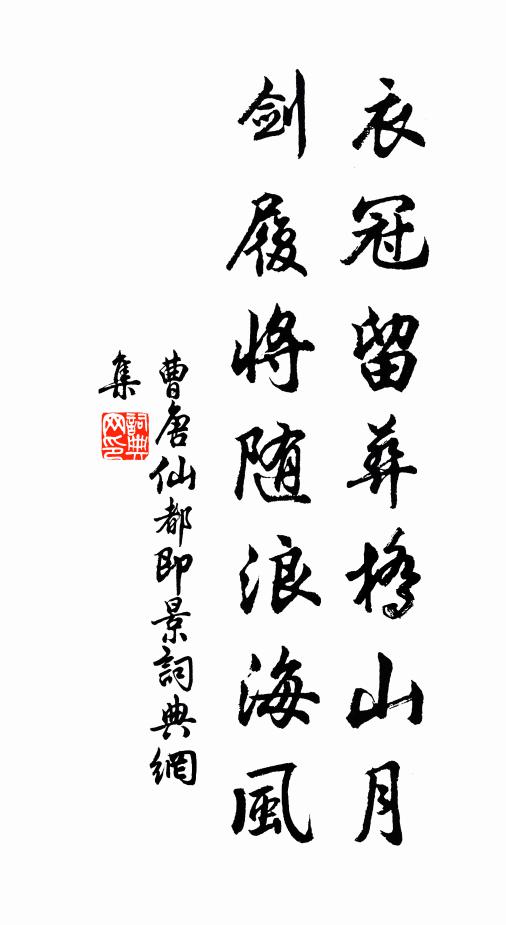 衣冠留葬橋山月
劍履將随浪海風
曹唐仙都即景詞典網
集
詞典
网印